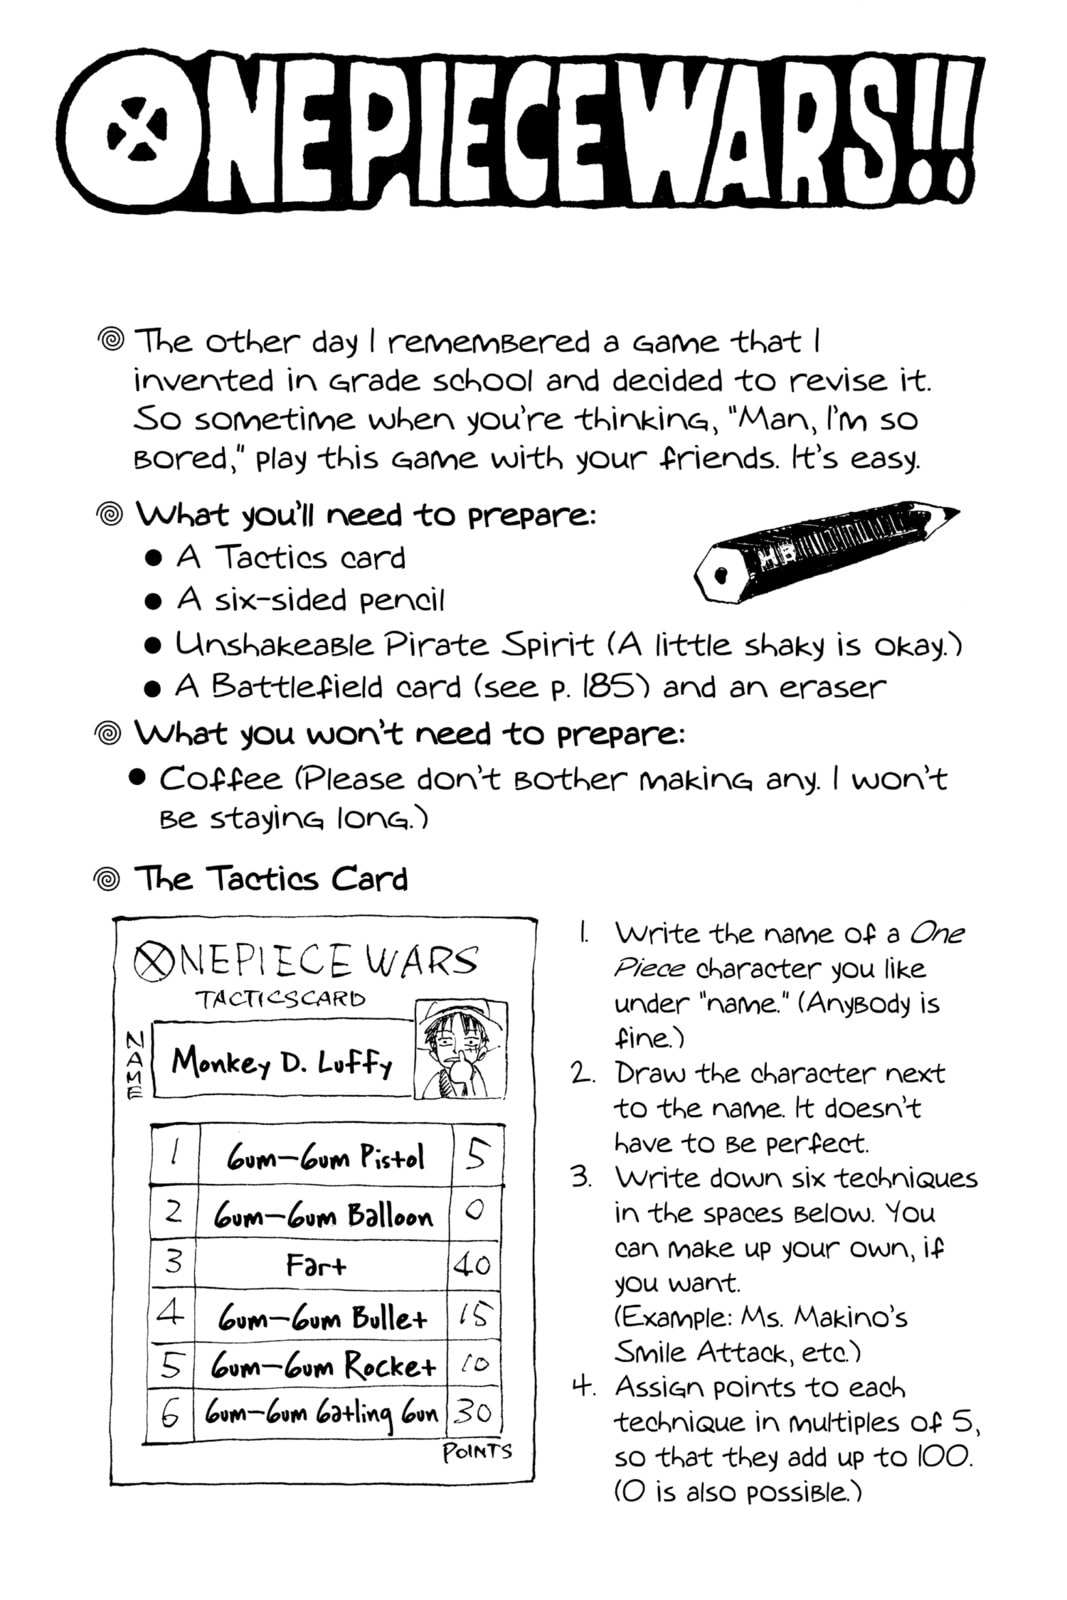 ONE PIECE WARS!!
The other day I remembered a game that I
invented in grade school and decided to revise it.
So sometime when you're thinking, "Man, I'm so
bored," play this game with your friends. It's easy.
What you'll need to prepare:
• A Tactics card
• A six-sided pencil
HB
• Unshakeable Pirate Spirit (A little shaky is okay.)
• A Battlefield card (see p. 185) and an eraser
What you won't need to prepare:
• Coffee (Please don't bother making any. I won't
be staying long.)
The Tactics Card
ONE PIECE WARS
TACTICS CARD
NAME
Monkey D. Luffy
1 Gum-Gum Pistol 5
2 Gum-Gum Balloon 0
3 Fart 40
4 Gum-Gum Bullet 15
5 Gum-Gum Rocket 10
6 Gum-Gum Gatling Gun 30
POINTS
1. Write the name of a One
Piece character you like
under "name." (Anybody is
fine.)
2. Draw the character next
to the name. It doesn't
have to be perfect.
3. Write down six techniques
in the spaces below. You
can make up your own, if
you want.
(Example: Ms. Makino's
Smile Attack, etc.)
4. Assign points to each
technique in multiples of 5,
so that they add up to 100.
(0 is also possible.)